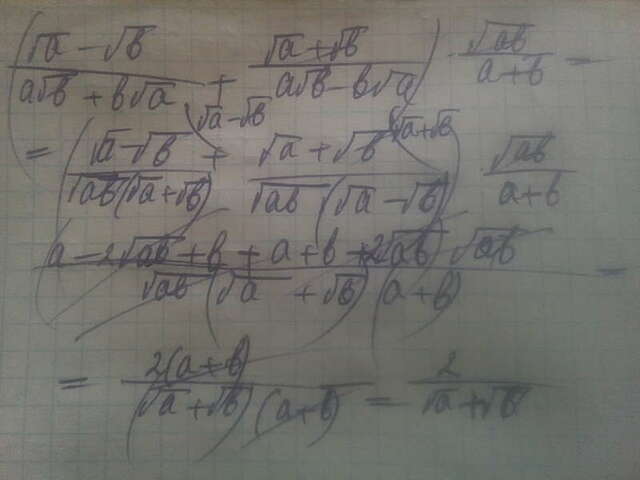 ((√a - √b)/(a√b + b√a) + (√a + √b)/(a√b - b√a)) · √ab/(a + b) =
= ((√a - √b)/(√ab(√a + √b)) √a - √b + (√a + √b)/(√ab(√a - √b)) √a + √b) √ab/(a + b)
(a - 2√ab + b + a + b + 2√ab) √ab/(√ab(√a + √b)(a + b)) =
= 2(a + b)/((√a + √b)(a + b)) = 2/(√a + √b)